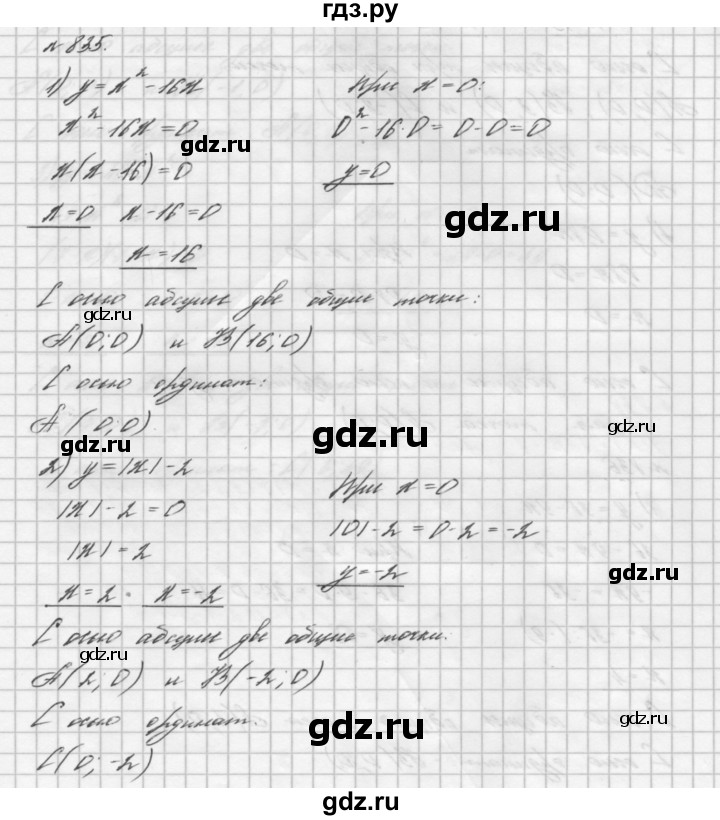 гдз.ру
№ 835.
1) y = x² - 16x
При x = 0:
x² - 16x = 0
0² - 16·0 = 0 - 0 = 0
gdz.ru
x(x - 16) = 0
y = 0
x = 0 x - 16 = 0
gdz.ru
x = 16
С осью абсцисс две общие точки:
gdz.ru
A(0; 0) и B(16; 0)
С осью ординат:
A(0; 0)
gdz.ru
gdz.ru
gdz.ru
2) y = |x| - 2
При x = 0
|x| - 2 = 0
|0| - 2 = 0 - 2 = -2
|x| = 2
y = -2
gdz.ru
x = 2. x = -2
С осью абсцисс две общие точки.
gdz.ru
A(2; 0) и B(-2; 0)
С осью ординат.
gdz.ru
gdz.ru
C(0; -2)
gdz.ru